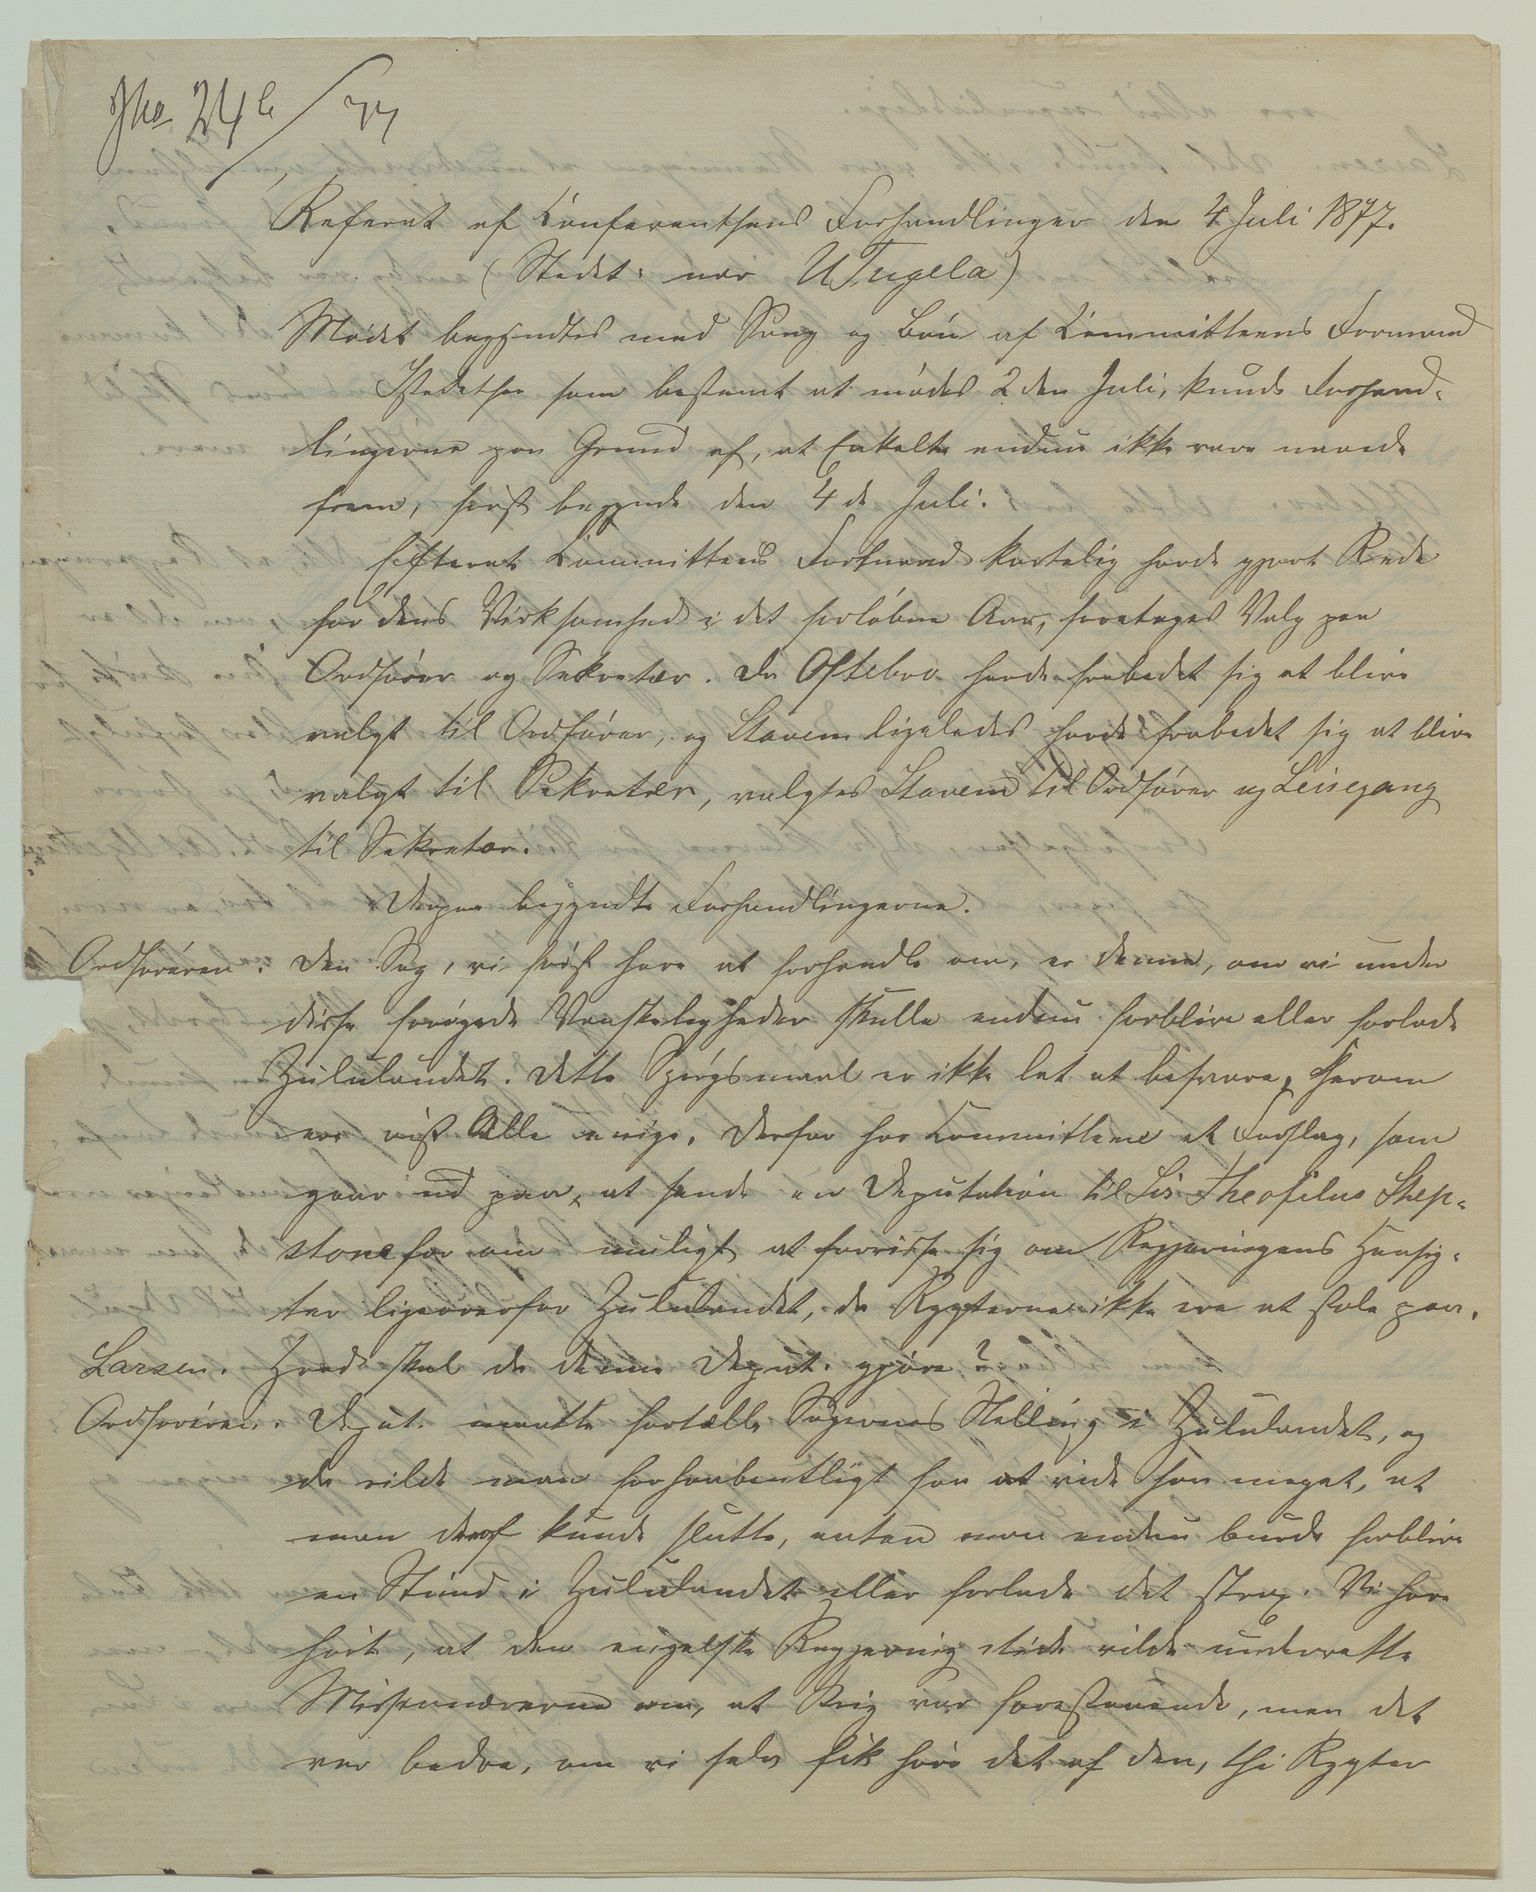 Jno 24 b/77
Referat af Conferentsens Forhandlinger den 4 Juli 1877.
(Stedet: nær UTugela)
Mødet begyndtes med Sang og Bøn af Committeens Formand
Istedetfor som bestemt at mødes 2den Juli, kunde Forhand-
lingerne paa Grund af, at Enkelte endnu ikke vare naaede
frem, først begynde den 4de Juli.
Efterat Committeens Formand kortelig havde gjort Rede
for dens Virksomhed i det forløbne Aar, foretoges Valg paa
Ordfører og Sekretær. Da Oftebro havde frabedet sig at blive
valgt til Ordfører, og Stavem ligeledes havde frabedet sig at blive
valgt til Sekretær, valgtes Stavem til Ordfører og Leisegang
til Sekretær.
Derpaa begyndte Forhandlingerne.
Ordføreren. Den Sag, vi først have at forhandle om, er denne, om vi under
disse forøgede Vanskeligheder skulle endnu forblive eller forlade
Zululandet. Dette Spørgsmaal er ikke let at besvare, herom
ere vist Alle enige. Derfor har Committeen et Forslag, som
gaar ud paa, at sende en Deputation til Sir Theofilus Shep-
stone for om muligt at forvisse sig om Regjeringens Hensig-
ter ligeoverfor Zululandet, da Rygterne ikke ere at stole paa.
Larsen. Hvad skal da denne Deput. gjøre?
Ordføreren. Deput. maatte fortælle Sagernes Stilling i Zululandet, og
da vilde man forhaabentligt faa at vide saa meget, at
man deraf kunde slutte, enten man endnu burde forblive
en Stund i Zululandet eller forlade det strax. Vi have
hørt, at den engelske Regjering stedse vilde underrette
Missionærerne om, at Krig var forestaaende, men det
var bedre, om vi selv fik høre det af den, thi Rygter